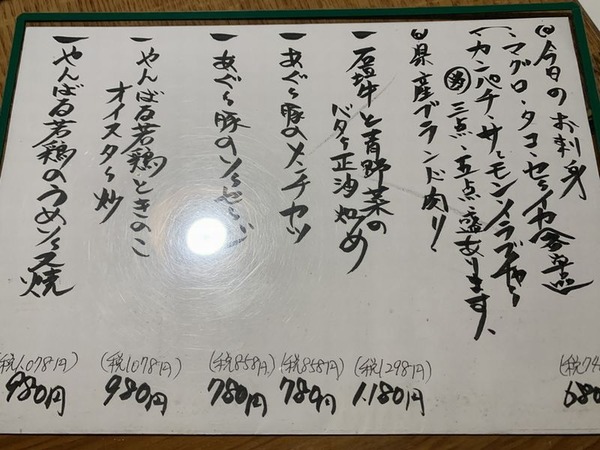 ◎今日のお刺身
、マグロ・タコ・セーイカ 各単品
、カンパチ・サーモン・メラブチャー
㊙三点・五点盛あります、
◎県産ブランド肉！
一石垣牛と青野菜の
バター正油炒め
(税1298円)
1.180円
一あぐー豚のメンチカツ
(税858円)
780円
一あぐー豚のソーセージ
(税858円)
780円
一やんばる若鶏ときのこ
オイスター炒
(税1078円)
980円
一やんばる若鶏のうめソース焼
(税1.078円)
980円
(税74
680